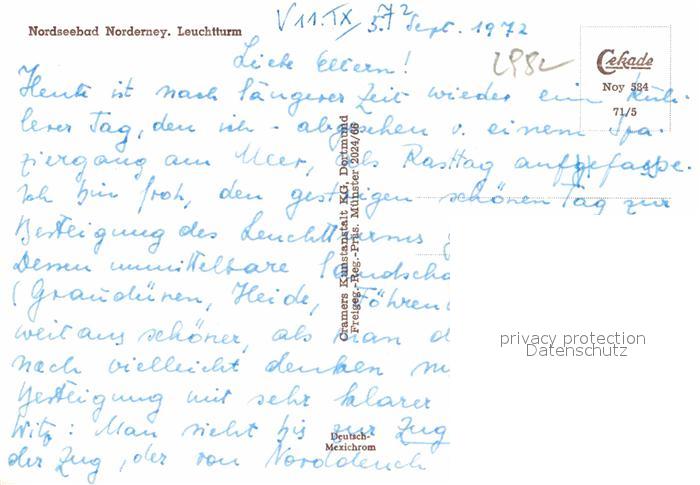 Nordseebad Norderney. Leuchtturm
V 11. IX 72
5. Sept. 1972
2982
Cekade
Noy 584
71/5
Liebe Eltern!
Heute ist nach längerer Zeit wieder ein küh-
lerer Tag, den ich - abgesehen v. einem Spa-
ziergang am Meer, als Rasttag auffasse.
Ich bin froh, den gestrigen schönen Tag zur
Besteigung des Leuchtturms
Dessen unmittelbare Landscha
(Graudünen, Heide, Föhren
weitaus schöner, als man d
nach vielleicht denken
Besteigung mit sehr klarer
Witz: Man sieht bis zur Zug
der Zug, der von Norddeich
Cramers Kunstanstalt KG, Dortmund
Freigeg.-Reg.-Präs. Münster 2024/66
Deutsch-
Mexichrom
privacy protection
Datenschutz